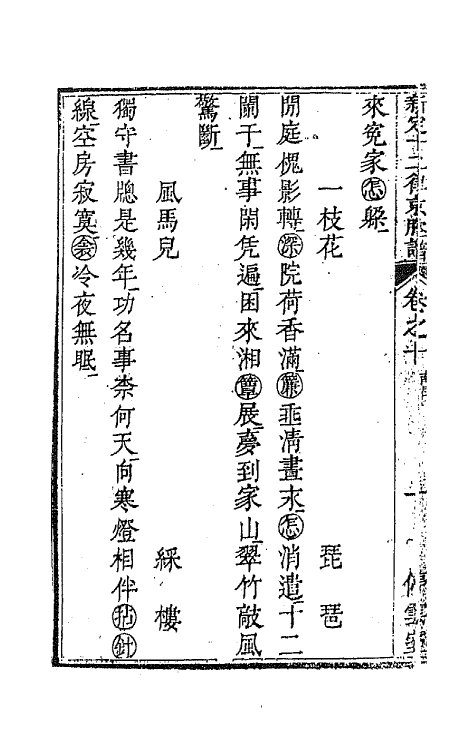 新定十二律京腔譜 卷之十
來寃家怎躱
一枝花 琵琶
閒庭槐影轉深院荷香滿簾垂凊晝永怎消遣十二
闌干無事閑凭遍困來湘簟展夢到家山翠竹敲風
驚斷
風馬兒 綵樓
獨守書牕是幾年功名事柰何天向寒燈相伴拈針
線空房寂寞衾冷夜無眠